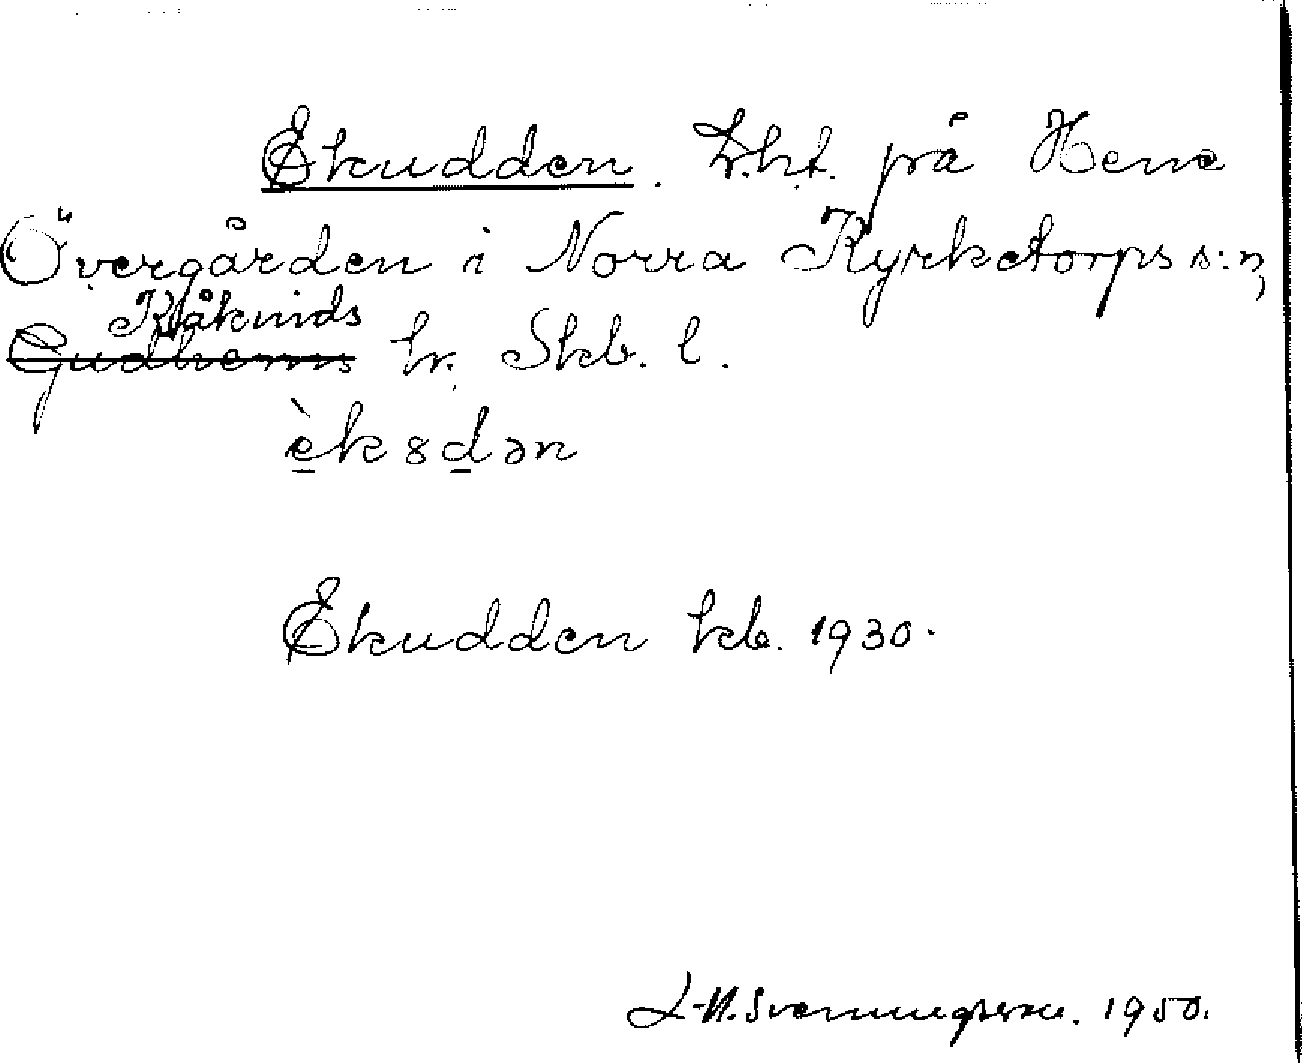 Ekudden. Lht. på Hene
Övergården i Norra Kyrketorps s:n,
Kåkinds
Gudhems hr. Skb. l.
èkɞdən
Ekudden kb. 1930.
1950.